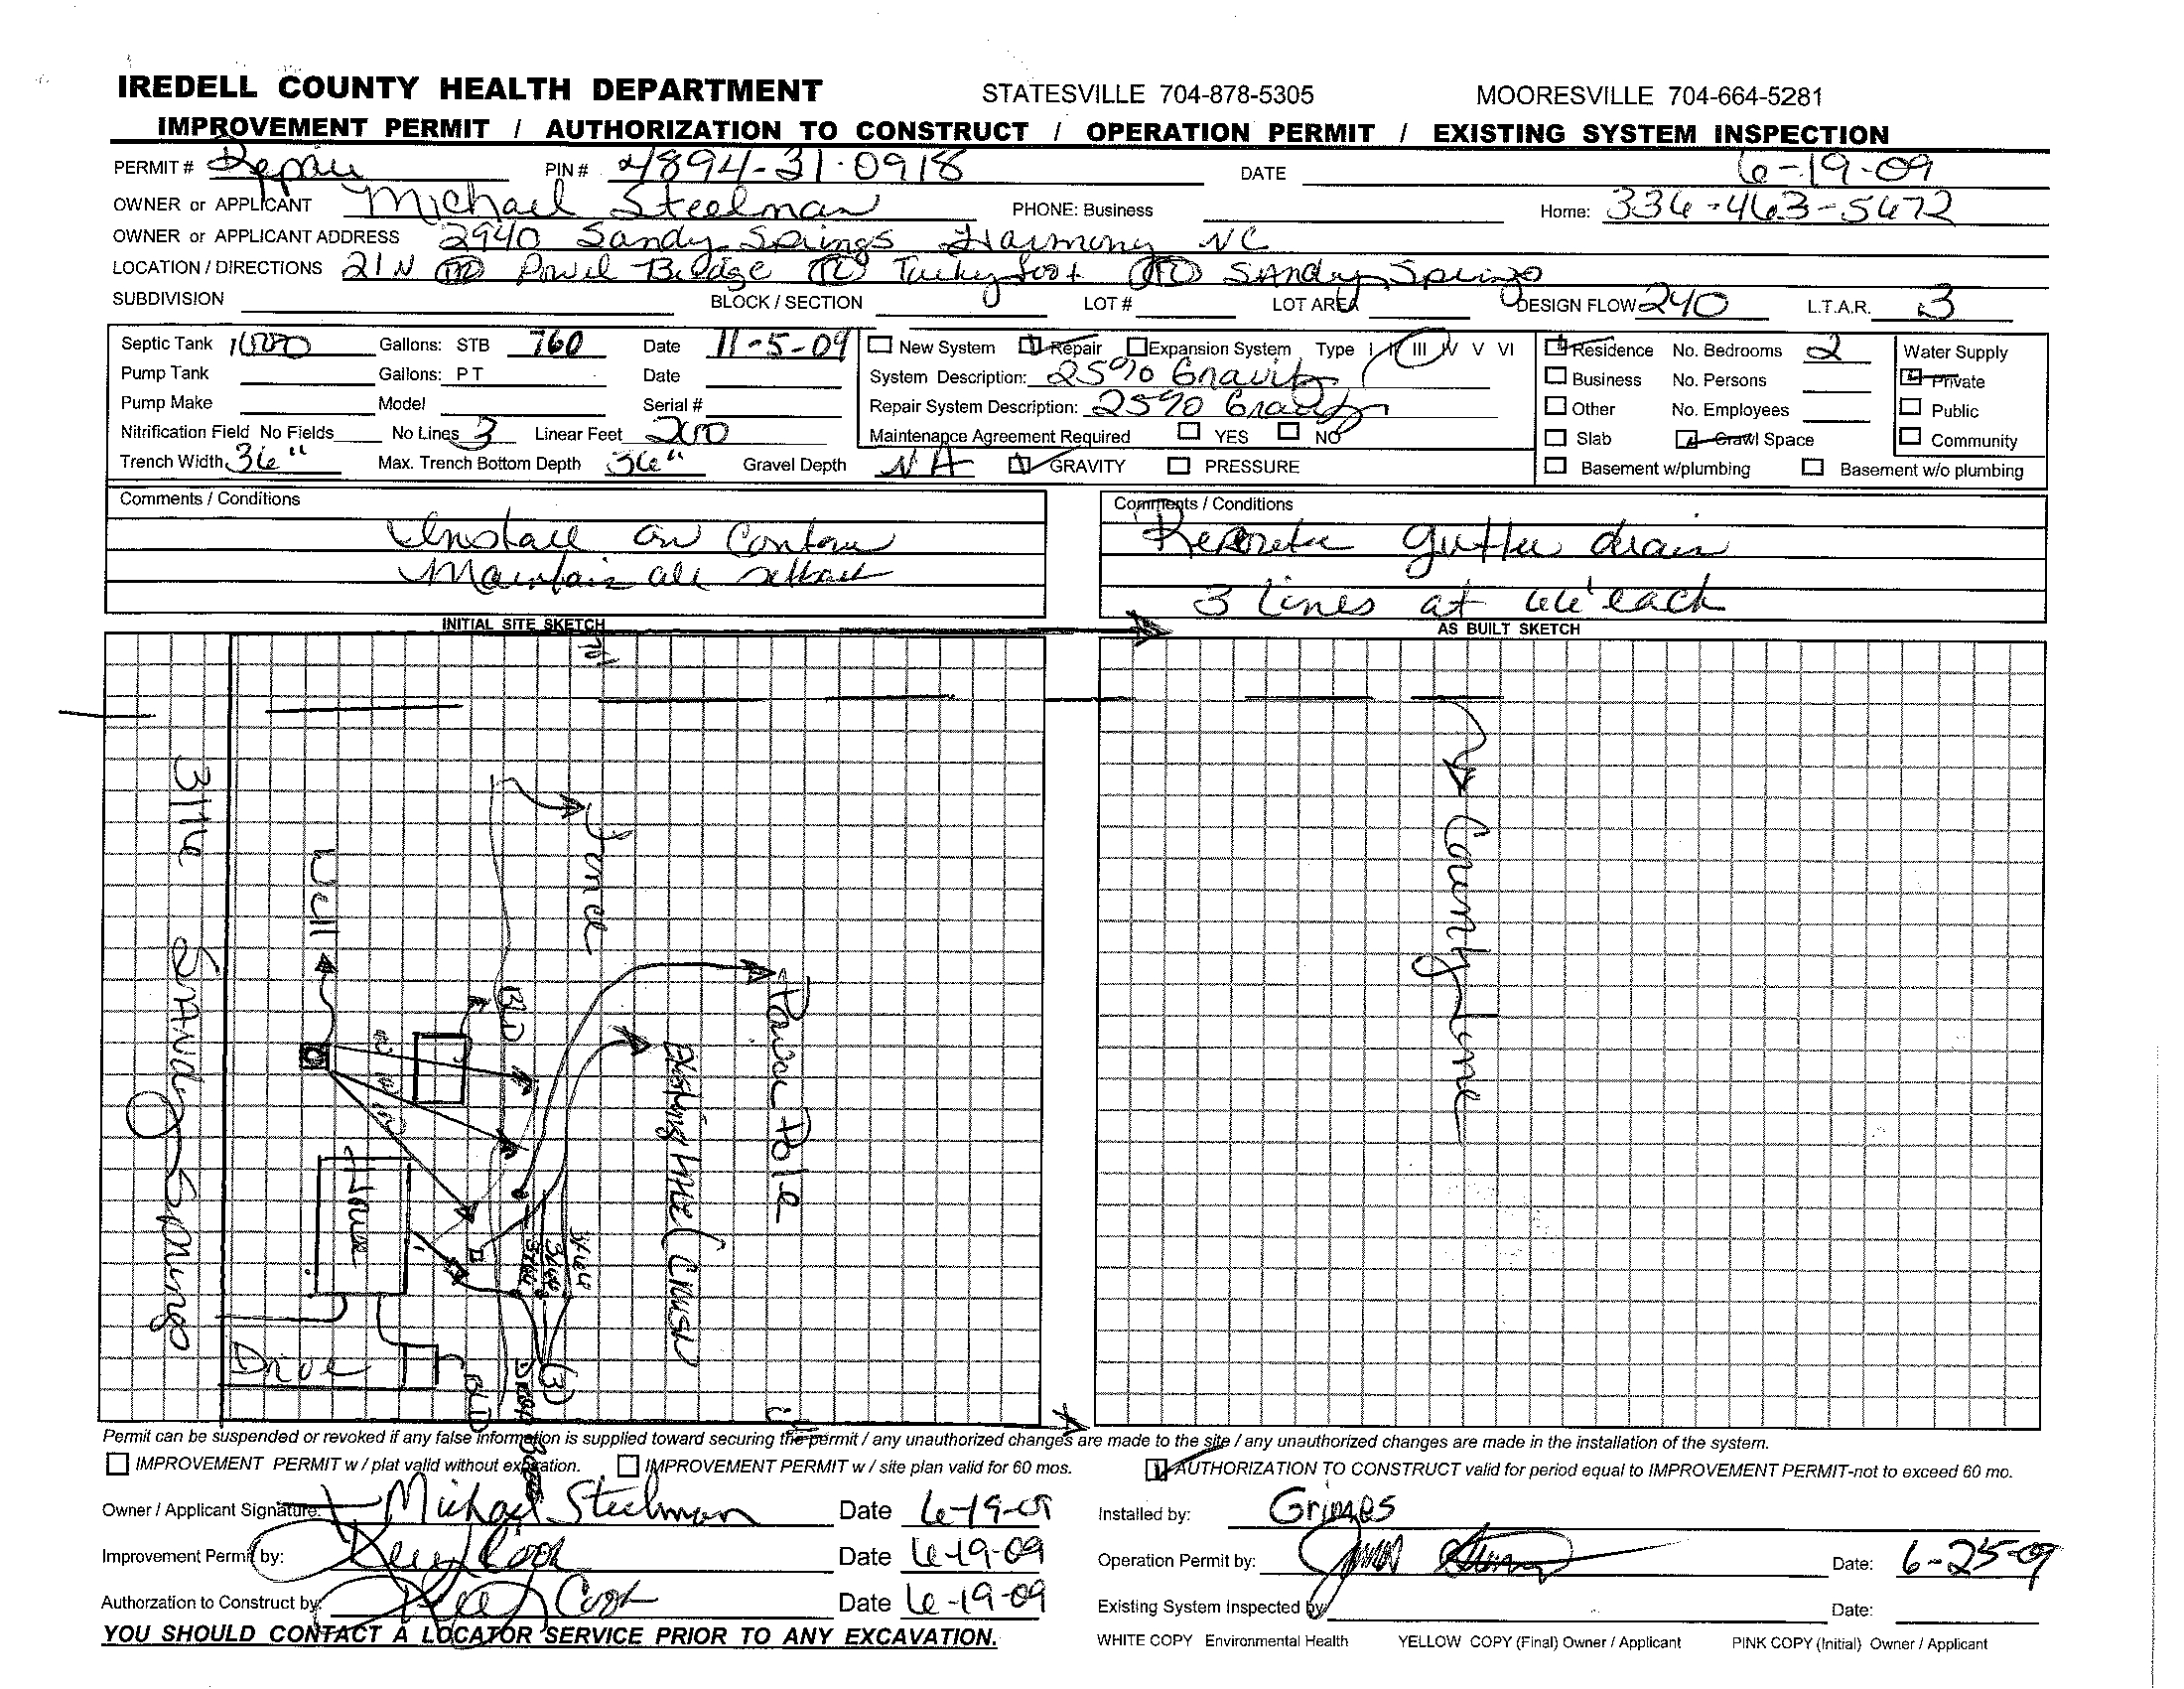 IREDELL COUNTY HEALTH DEPARTMENT STATESVILLE 704-878-5305 MOORESVILLE 704-664-5281
IMPROVEMENT PERMIT / AUTHORIZATION TO CONSTRUCT / OPERATION PERMIT / EXISTING SYSTEM INSPECTION
PERMIT # Repair PIN # 4894-31-0918 DATE 6-19-09
OWNER or APPLICANT Michael Steelman PHONE: Business Home: 336-463-5672
OWNER or APPLICANT ADDRESS 2940 Sandy Springs Harmony NC
LOCATION / DIRECTIONS 21N Bridge Turkey foot Sandy Springs
SUBDIVISION BLOCK / SECTION LOT # LOT AREA DESIGN FLOW 240 L.T.A.R. .3
Septic Tank 1000 Gallons: STB 760 Date 11-5-09 New System Repair Expansion System Type I II III IV V VI Residence No. Bedrooms 2 Water Supply
Pump Tank Gallons: PT Date System Description: 25% Gravity Business No. Persons Private
Pump Make Model Serial # Repair System Description: 25% Gravity Other No. Employees Public
Nitrification Field No Fields No Lines 3 Linear Feet 200 Maintenance Agreement Required YES NO Slab Crawl Space Community
Trench Width 36" Max. Trench Bottom Depth 36" Gravel Depth NA GRAVITY PRESSURE Basement w/plumbing Basement w/o plumbing
Comments / Conditions Comments / Conditions
Install on Contour gutter drain
Maintain all setback
3 lines at 66' each
INITIAL SITE SKETCH AS BUILT SKETCH
311'
Sandy Springs
Well
Fence
BLD
Power Pole
Existing line (Crush)
County Line
100
House
3/66
3/66
3/66
Drive
BLD
Drop Boxes
(3)
Permit can be suspended or revoked if any false information is supplied toward securing the permit / any unauthorized changes are made to the site / any unauthorized changes are made in the installation of the system.
IMPROVEMENT PERMIT w / plat valid without expiration. IMPROVEMENT PERMIT w / site plan valid for 60 mos. AUTHORIZATION TO CONSTRUCT valid for period equal to IMPROVEMENT PERMIT-not to exceed 60 mo.
Owner / Applicant Signature: X Michael Steelman Date 6-19-09 Installed by: Grimes
Improvement Permit by: Date 6-19-09 Operation Permit by: Date: 6-25-09
Authorzation to Construct by: Date 6-19-09 Existing System Inspected by: Date:
YOU SHOULD CONTACT A LOCATOR SERVICE PRIOR TO ANY EXCAVATION. WHITE COPY Environmental Health YELLOW COPY (Final) Owner / Applicant PINK COPY (Initial) Owner / Applicant